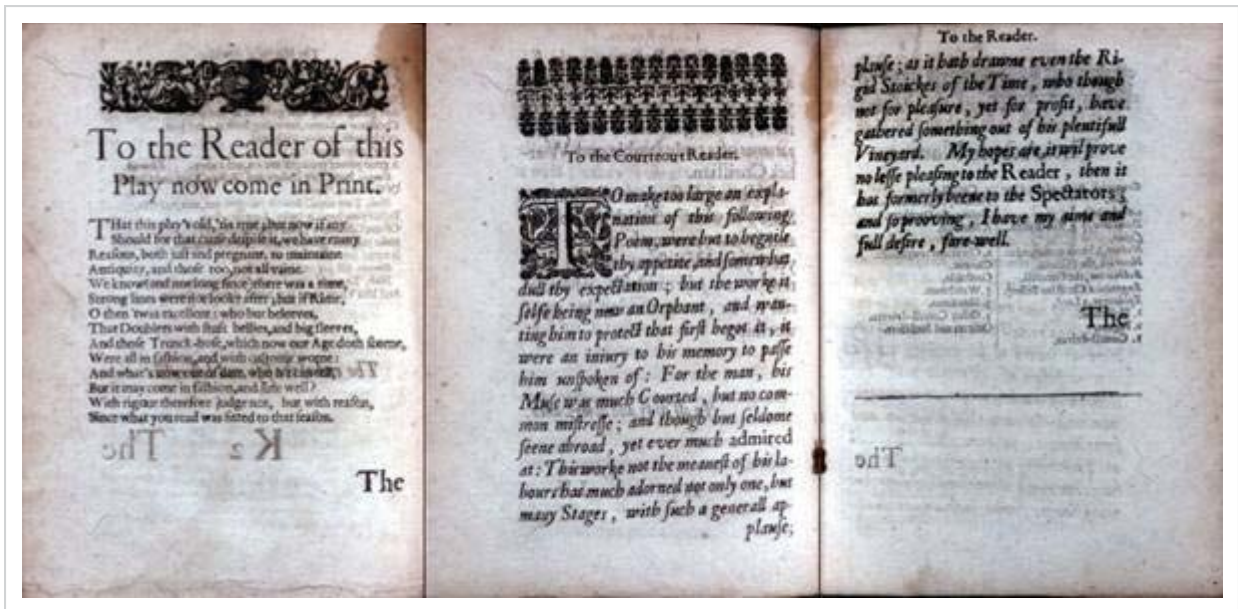 To the Reader of this
Play now come in Print.
THat this play's old, 'tis true, but now if any
Should for that cause despise it, we have many
Reasons, both just and pregnant, to maintaine
Antiquity, and those too, not all vaine.
We know (and not long since) there was a time,
Strong lines were not lookt after, but if Rime,
O then 'twas excellent: who but beleeves,
That Doublets with stuft bellies, and big sleeves,
And those Trunck-hose, which now our Age doth scorne,
Were all in fashion, and with custome worne:
And what's now out of date, who is't can tell,
But it may come in fashion, and sute well?
With rigour therefore judge not, but with reason,
Since what you read was fitted to that season.
K 2
The
The
To the Courteout Reader.
TO make too large an expla-
nation of this following
Poem, were but to beguile
thy appetite, and somewhat
dull thy expectation; but the worke it
selfe being now an Orphant, and wan-
ting him to protect that first begot it, it
were an iniury to his memory to passe
him unspoken of: For the man, his
Muse was much Courted, but no com-
mon mistresse; and though but seldome
seene abroad, yet ever much admired
at: This worke not the meanest of his la-
bours has much adorned not only one, but
many Stages, with such a generall ap-
plause;
To the Reader.
plause; as it hath drawne even the Ri-
gid Stoickes of the Time, who though
not for pleasure, yet for profit, have
gathered something out of his plentifull
Vineyard. My hopes are, it wil prove
no lesse pleasing to the Reader, then it
has formerly beene to the Spectators;
and so prooving, I have my aime and
full desire, fare-well.
The
The